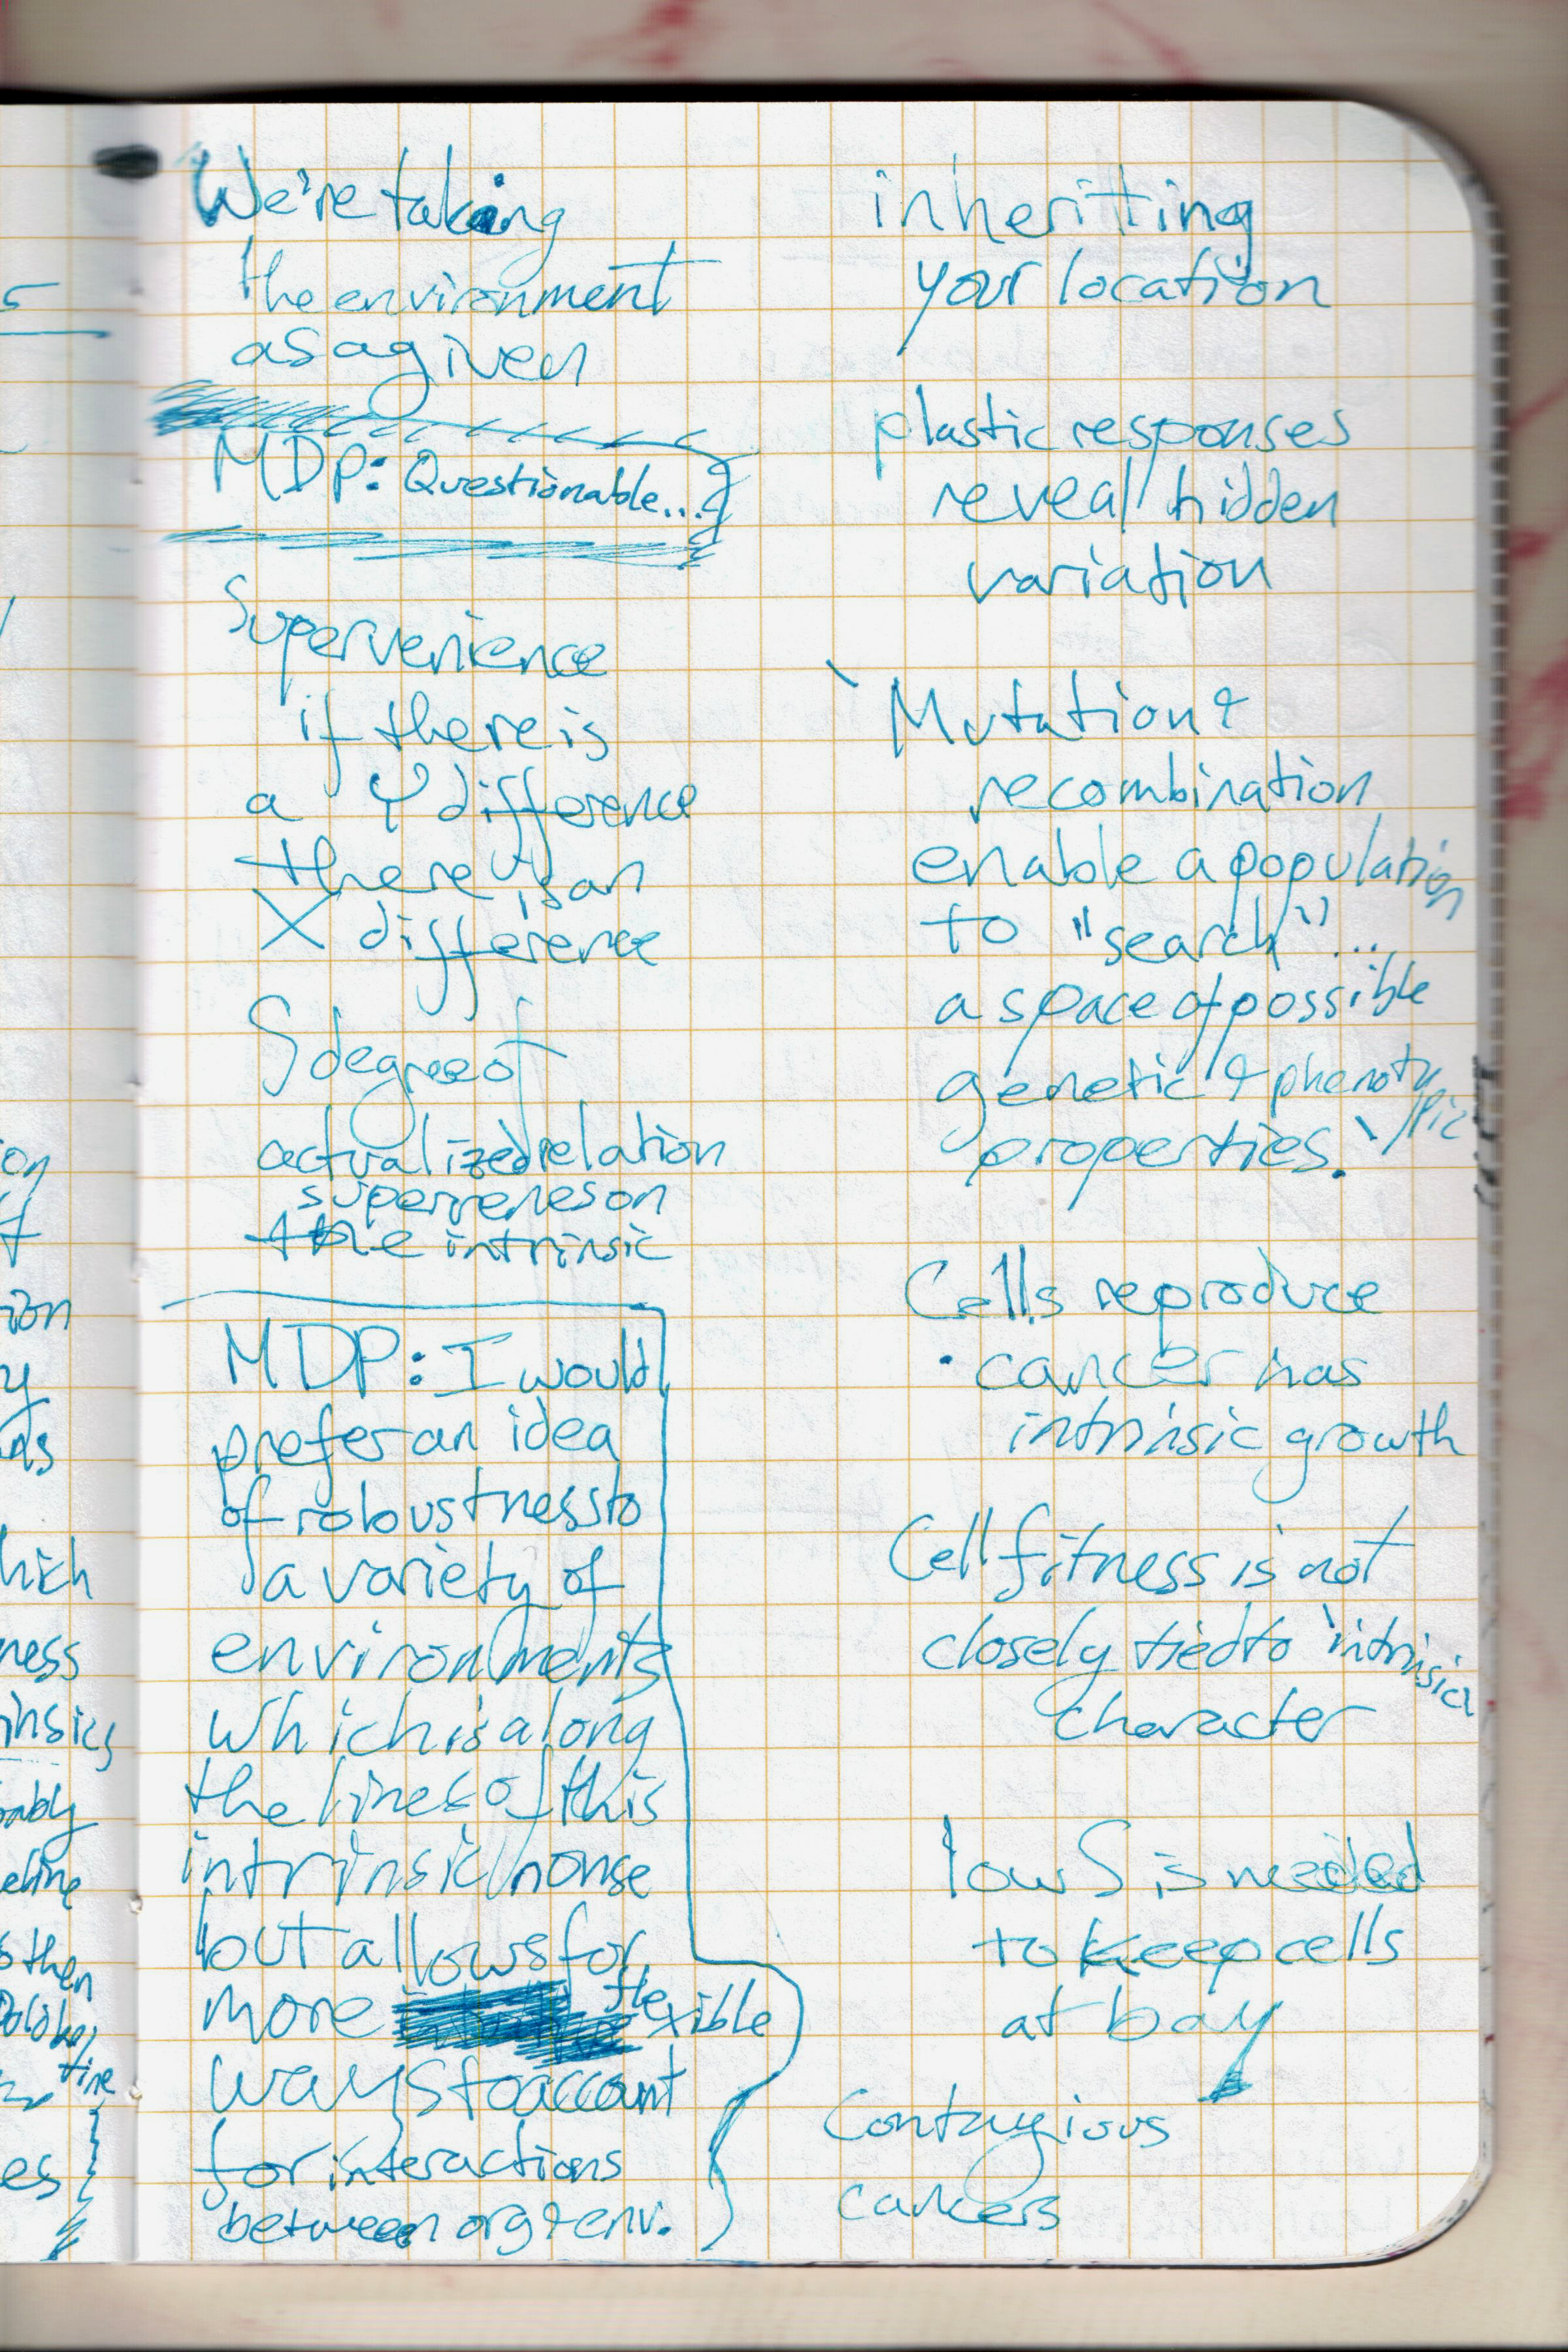 We're taking
the environment
as a given
MDP: Questionable...
Supervenience
if there is
a Ψ difference
there is an
X difference
S degree of
actualized relation
supervenes on
the intrinsic
MDP: I would
prefer an idea
of robustness to
a variety of
environments
which is along
the lines of this
intrinsic nonse
but allows for
more flexible
ways to account
for interactions
between org & env.
inheritting
your location
plastic responses
reveal hidden
variation
Mutation &
recombination
enable a population
to "search"...
a space of possible
genetic & phenotypic
properties.
Cells reproduce
• cancer has
intrinsic growth
Cell fitness is not
closely tied to intrinsic
character
low S is needed
to keep cells
at bay
Contagious
cancers